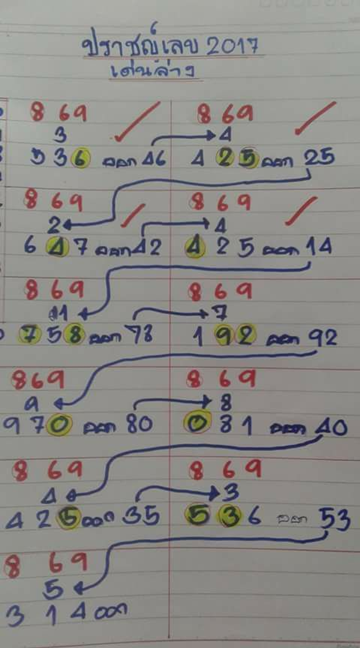 ปราชญ์เลข 2017
เด่นล่าง
8 69
3
336 ออก 46
8 69
4
425 ออก 25
8 69
2
647 ออก 42
8 69
4
425 ออก 14
8 69
1
758 ออก 78
8 69
7
192 ออก 92
869
9
970 ออก 80
8 69
8
081 ออก 40
8 69
4
425 ออก 35
8 69
3
536 ออก 53
8 69
5
314 ออก